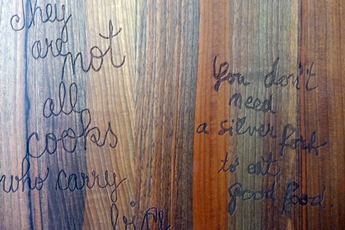 They
are not
all
cooks
who carry
long
You don't
need
a silver fork
to eat
good food.